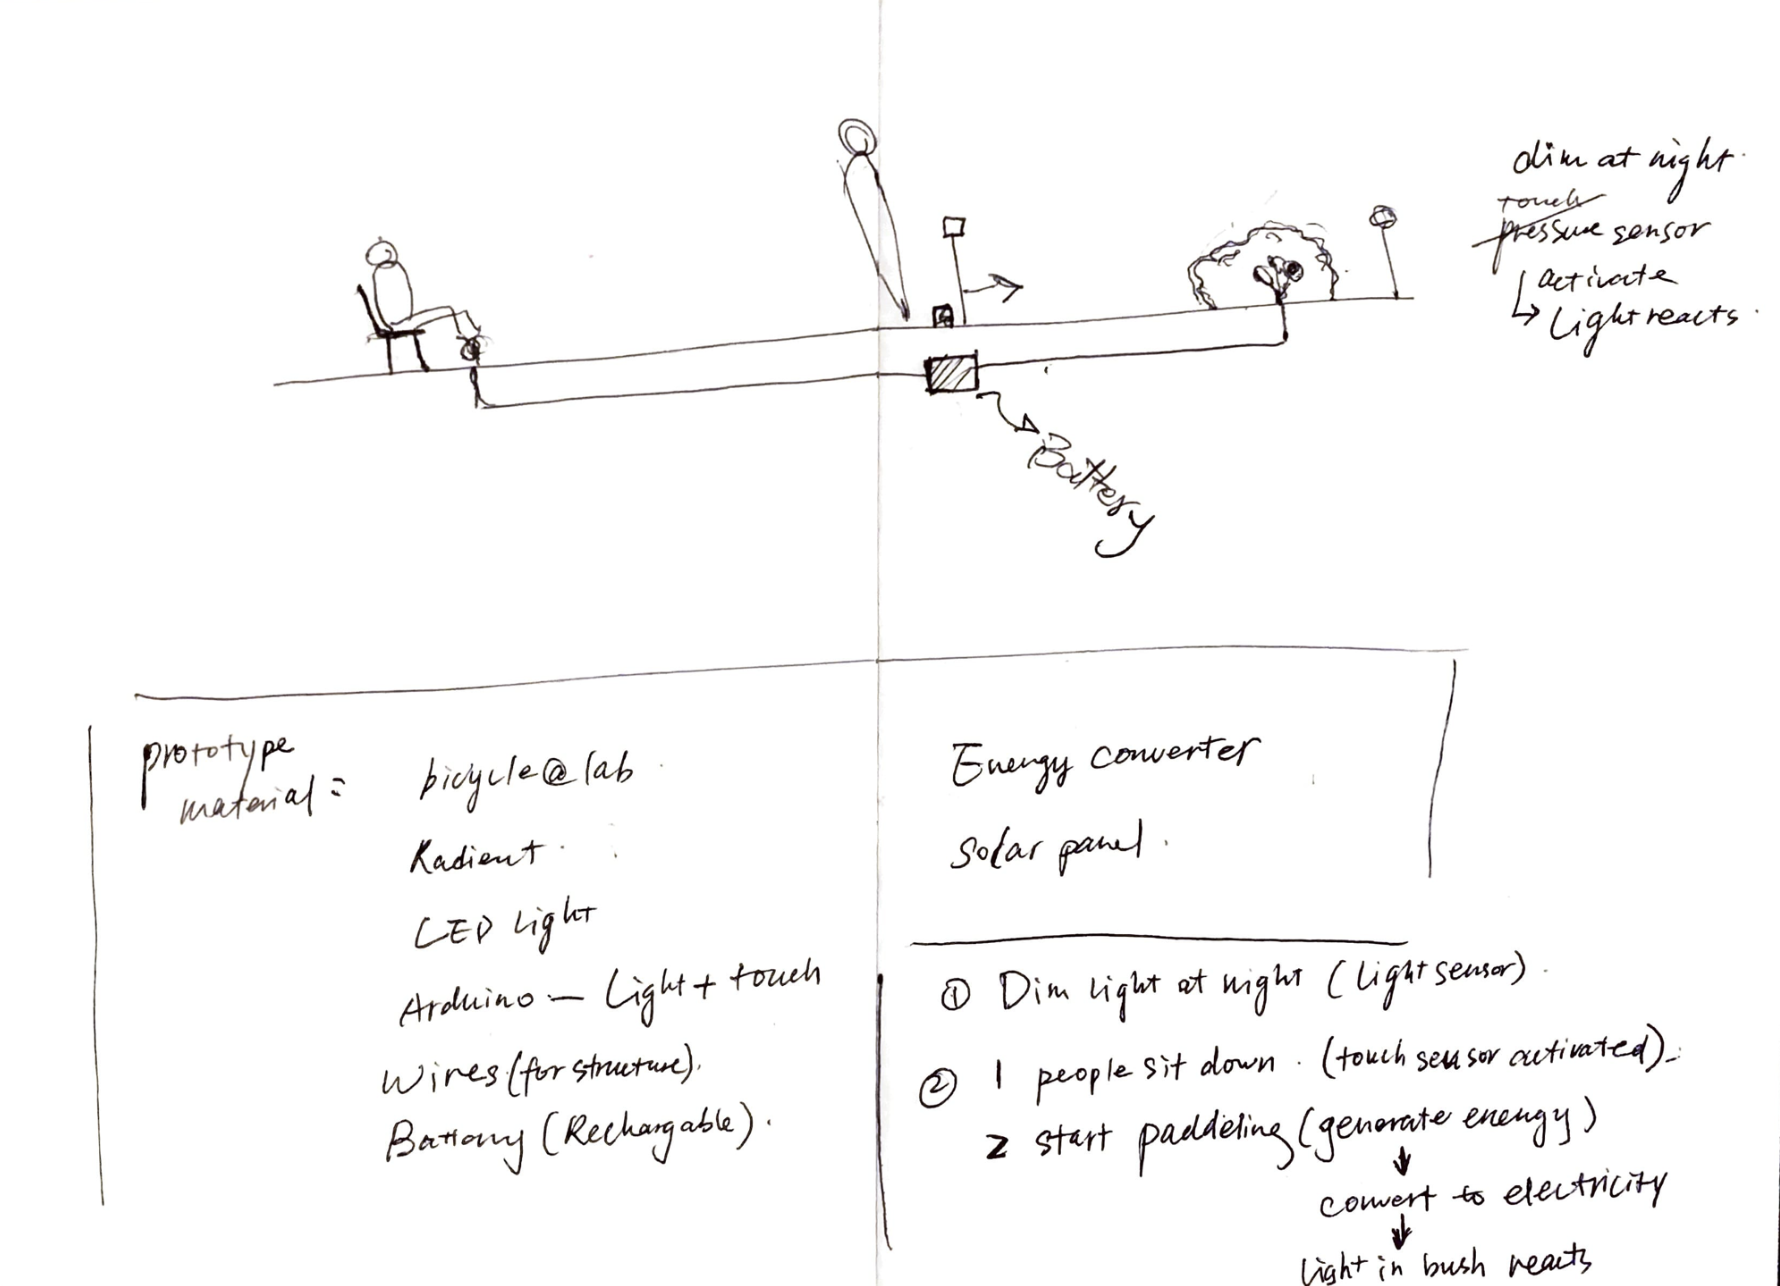 dim at night.
touch
pressure sensor
activate
Light reacts.
Battery
prototype
material:
bicycle@lab
Radient
LED Light
Arduino — Light + touch
Wires (for structure).
Battery (Rechargable).
Energy converter
Solar panel.
① Dim light at night (light sensor).
② 1 people sit down. (touch sensor activated).
2 start paddeling (generate energy)
convert to electricity
light in bush reacts